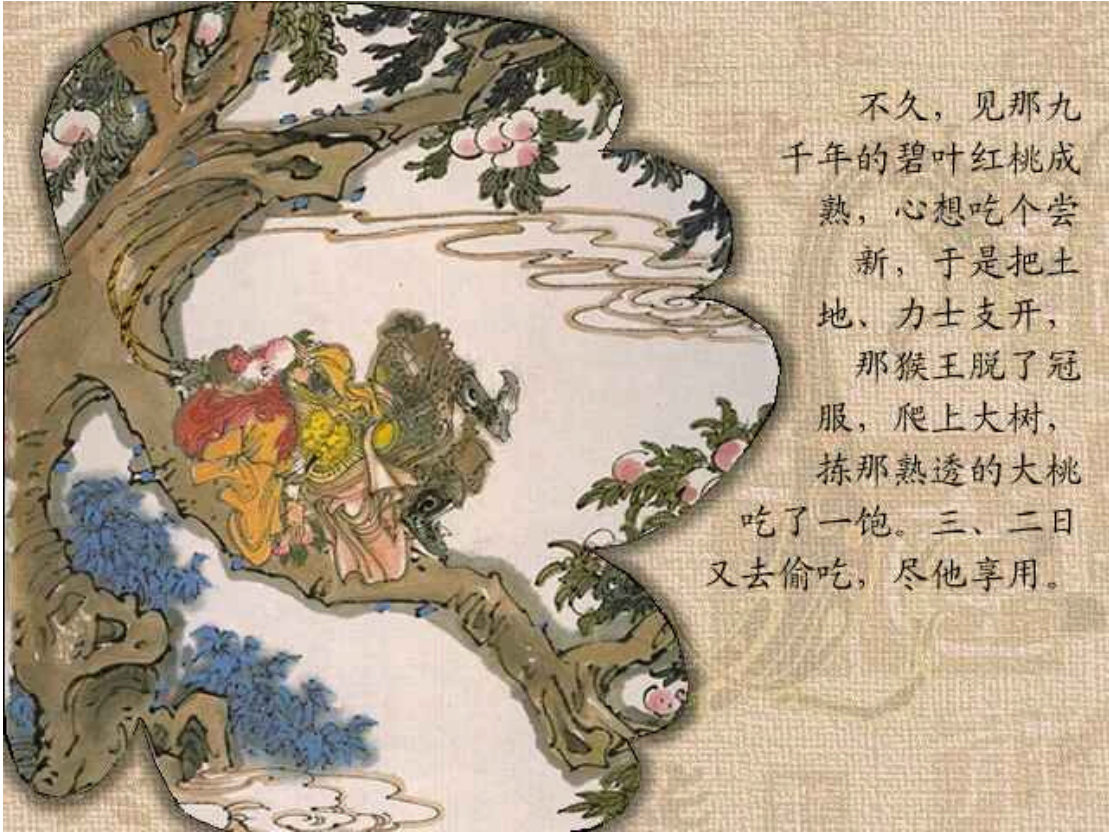 不久，见那九
千年的碧叶红桃成
熟，心想吃个尝
新，于是把土
地、力士支开，
那猴王脱了冠
服，爬上大树，
拣那熟透的大桃
吃了一饱。三、二日
又去偷吃，尽他享用。